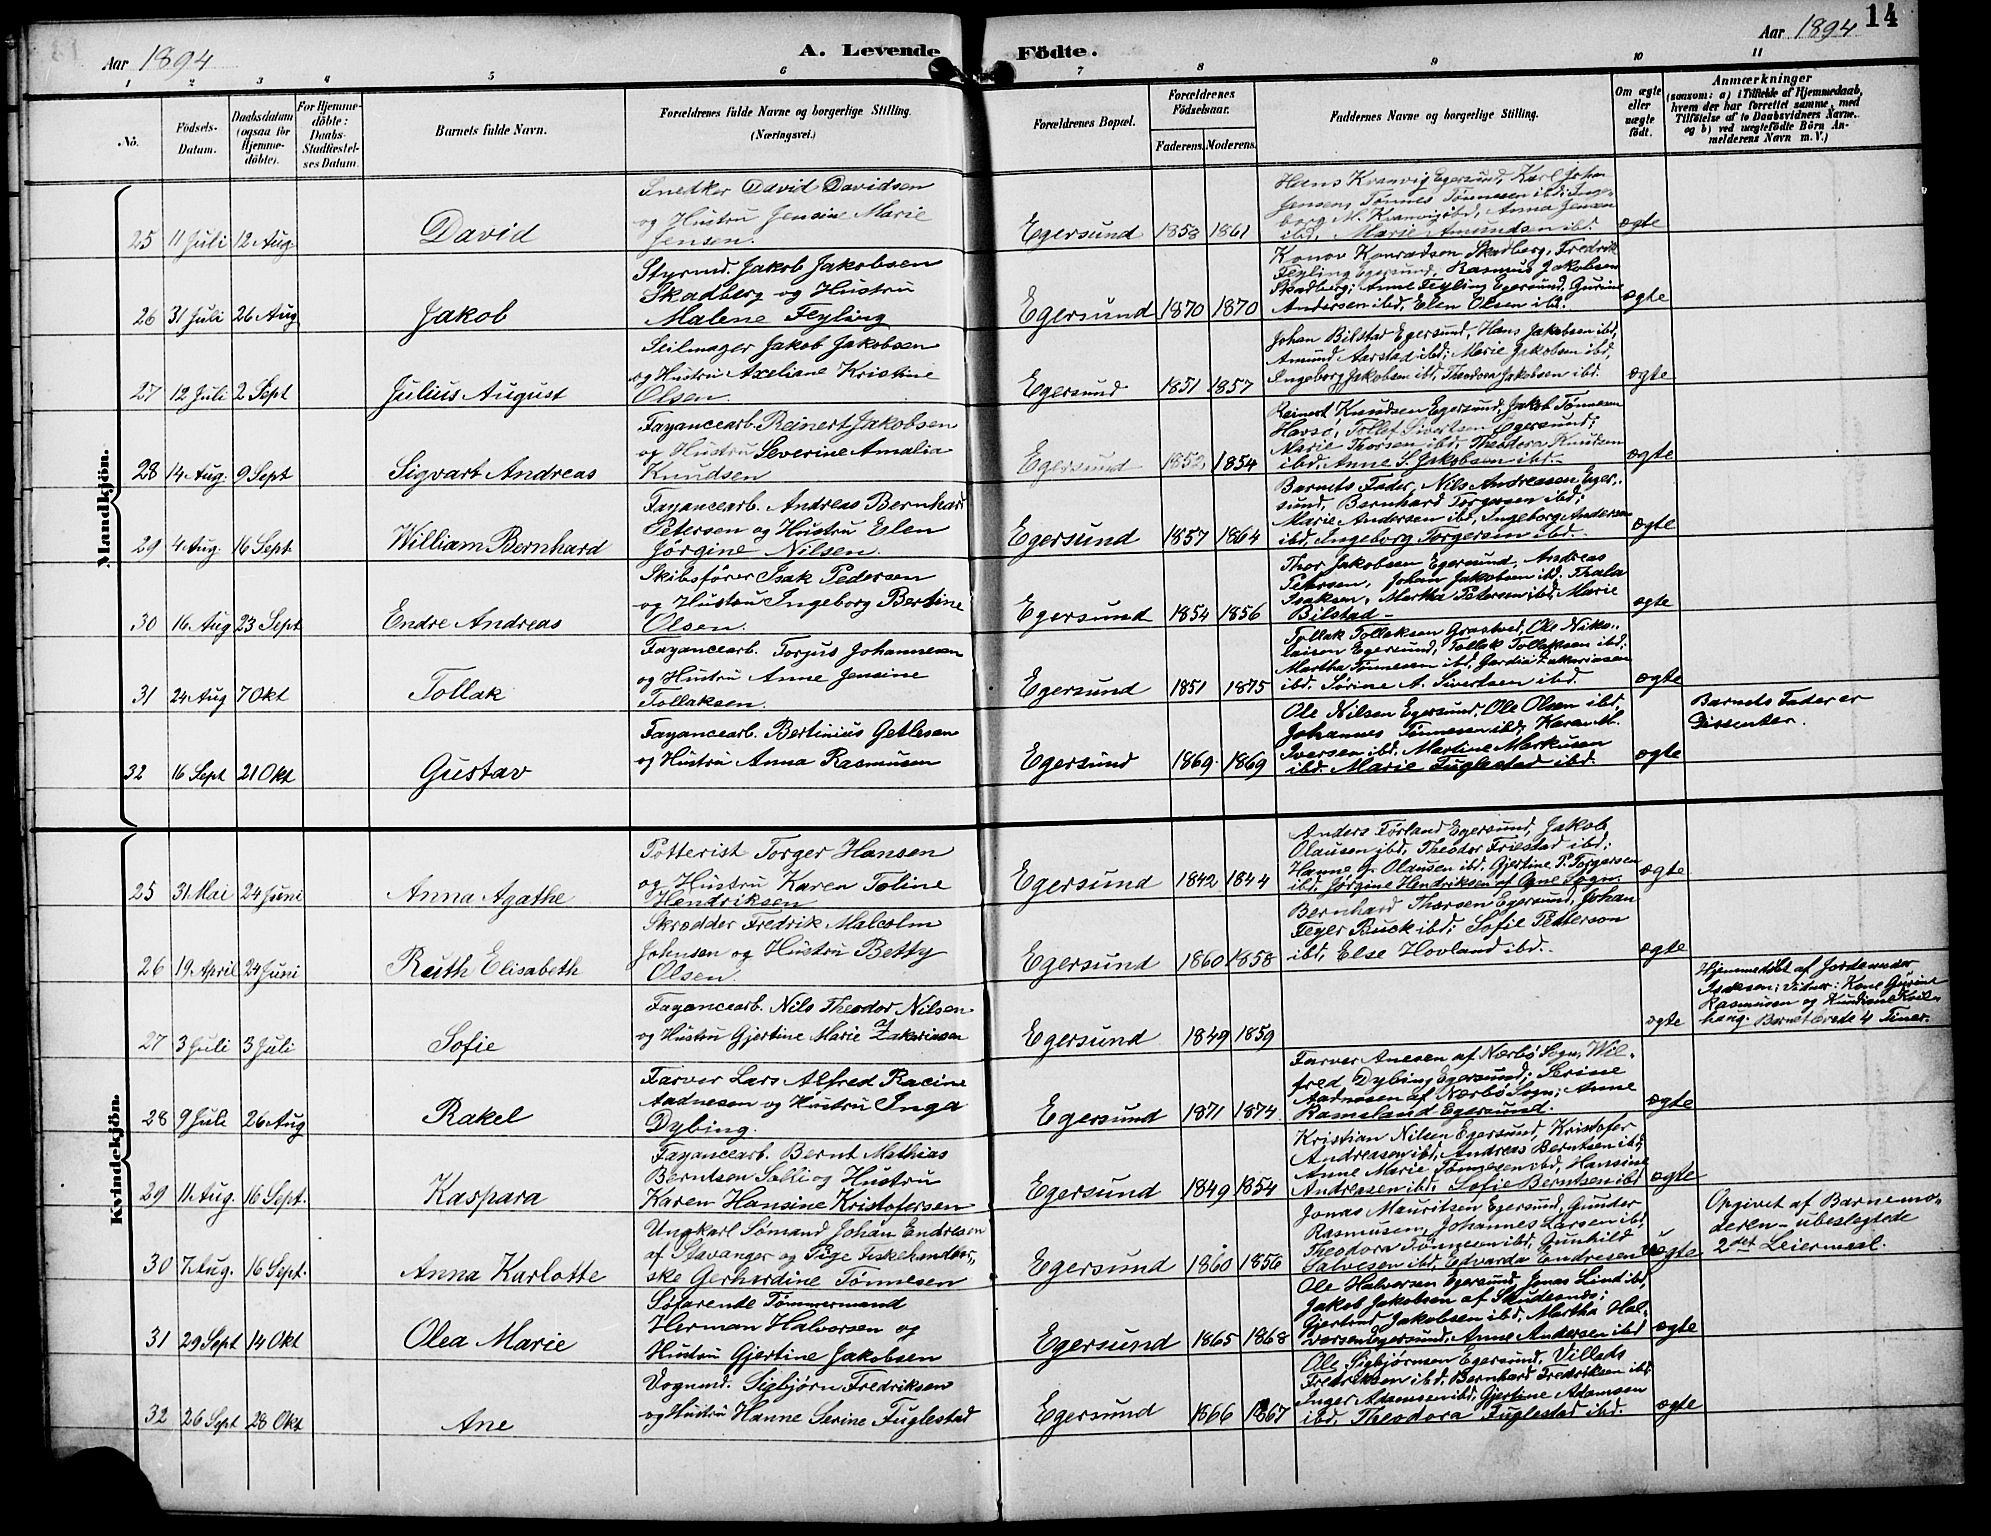 14
Aar 1894
A. Levende Födte.
Aar 1894
1 2 3 4 5 6 7 8 9 10 11
No.
Födsels-Datum.
Daabsdatum (ogsaa for Hjemmedöbte).
For Hjemmedöbte: Daabs-Stadfæstelses Datum.
Barnets fulde Navn.
Forældrenes fulde Navne og borgerlige Stilling. (Næringsvei.)
Forældrenes Bopæl.
Forældrenes Födselsaar.
Faderens. Moderens.
Faddernes Navne og borgerlige Stilling.
Om ægte eller uægte födt.
Anmærkninger
(saasom: a) i Tilfælde af Hjemmedaab, hvem der har forrettet samme, med Tilföielse af to Daabsvidners Navne, og b) ved uægtefödte Börn Anmelderens Navn m. V.)
Mandkjön.
Snedker David Davidsen
og Hustru Jensine Marie
Jensen.
25 11 Juli 12 Aug David Egersund 1853 1861
Hans Kranvig Egersund, Karl Johan
Jensen, Tønnes Tønnesen ibd; Inge-
borg M. Kranvig ibd, Anna Jensen
ibd, Marie Amundsen ibd. ægte
Styrmd. Jakob Jakobsen
Skadberg og Hustru
Malene Feyling
26 31 Juli 26 Aug Jakob Egersund 1870 1870
Konov Konradsen Skadberg, Fredrik
Feyling Egersund, Rasmus Jakobsen
Skadberg; Anne Feyling Egersund, Gurine
Andersen ibd, Elen Olsen ibd. ægte
Seilmager Jakob Jakobsen
og Hustru Axeliane Kristine
Olsen.
27 12 Juli 2 Sept Julius August Egersund 1851 1857
Johan Bilstad Egersund, Hans Jakobsen ibd,
Amund Aarstad ibd; Marie Jakobsen ibd,
Ingeborg Jakobsen ibd, Theodora Jakobsen ibd. ægte
Fayancearb. Reinert Jakobsen
og Hustru Severine Amalia
Knudsen
28 14 Aug. 9 Sept Sigvart Andreas Egersund 1852 1854
Reinert Knudsen Egersund, Jakob Tønnesen
Havsø, Tollef Sivertsen Egersund;
Marie Thorsen ibd, Theodora Knudsen
ibd, Anne S. Jakobsen ibd. ægte
Fayancearb. Andreas Bernhard
Petersen og Hustru Elen
Jørgine Nilsen.
29 4 Aug. 16 Sept William Bernhard Egersund 1857 1864
Barnets Fader, Nils Andreasen Eger-
sund, Bernhard Torgersen ibd;
Marie Andersen ibd, Ingeborg Andersen
ibd, Ingeborg Torgersen ibd. ægte
Skibsfører Isak Pedersen
og Hustru Ingeborg Bertine
Olsen.
30 16 Aug 23 Sept Endre Andreas Egersund 1854 1856
Thor Jakobsen Egersund, Andreas
Petersen, Johan Jakobsen ibd; Thala
Isaksen, Martha Petersen ibd, Marie
Bilstad ægte
Fayancearb. Torjus Johannesen
og Hustru Anne Jensine
Tollaksen.
31 24 Aug 7 Okt Tollak Egersund 1851 1875
Tollak Tollaksen Grastved, Ole Niko-
laisen Egersund, Tollak Tollaksen ibd;
Martha Tønnesen ibd, Gardia Zakariasen
ibd, Sørine A. Sivertsen ibd. ægte
Fayancearb. Bertinius Getlesen
og Hustru Anna Rasmusen
32 16 Sept 21 Okt Gustav Egersund 1869 1869
Ole Nilsen Egersund, Ole Olsen ibd,
Johannes Tønnesen ibd; Karen M.
Iversen ibd, Martine Markusen
ibd. Marie Fuglestad ibd. ægte
Barnets Fader er
Dissenter.
Kvindekjön.
Potterist Torger Hansen
og Hustru Karen Toline
Hendriksen
25 31 Mai 24 Juni Anna Agathe Egersund 1842 1844
Anders Førland Egersund, Jakob
Olausen ibd, Theodor Friestad ibd;
Hanne G. Olausen ibd, Gjertine P. Torgersen
ibd, Jørgine Hendriksen af Ogne Sogn. ægte
Skrædder Fredrik Malcolm
Johnsen og Hustru Betty
Olsen.
26 19 April 24 Juni Ruth Elisabeth Egersund 1860 1858
Bernhard Thorsen Egersund, Johan
Feyer Buck ibd; Sofie Petterson
ibd, Else Hovland ibd. ægte
Fayancearb. Nils Theodor Nilsen
og Hustru Gjertine Marie Zakariasen
27 3 Juli 3 Juli Sofie Egersund 1849 1859 ægte
Hjemmedøbt af Jordemoder
Isaksen; Vidner: Kone Gurine
Rasmusen og Kundiane Kvel-
haug. Barnet levede 4 Timer.
Farver Lars Alfred Racine
Aadnesen og Hustru Inga
Dybing.
28 9 Juli 26 Aug Rakel Egersund 1871 1874
Farver Anesen af Nærbø Sogn, Wil-
fred Dybing Egersund; Serine
Aadnesen af Nærbø Sogn; Anne
Ramsland Egersund. ægte
Fayancearb. Bernt Mathias
Berntsen Solli og Hustru
Karen Hansine Kristofersen
29 11 Aug. 16 Sept. Kaspara Egersund 1849 1854
Kristian Nilsen Egersund, Kristofer
Andreasen ibd, Andreas Berntsen ibd;
Anne Marie Tønnesen ibd, Hansine
Andreasen ibd, Sofie Berntsen ibd ægte
Ungkarl Sømand Johan Endresen
af Stavanger og Pige Fiskehandler-
ske Gerhardine Tønnesen
30 7 Aug. 16 Sept. Anna Karlotte Egersund 1860 1856
Jonas Mauritsen Egersund, Gunder
Rasmusen, Johannes Larsen ibd;
Theodora Tønnesen ibd, Gunhild
Salvesen ibd, Edvarda Endresen uægte
Opgivet af Barnemo-
deren - ubeslegtede
2det Leiermaal.
Søfarende Tømmermand
Herman Halvorsen og
Hustru Gjertine Jakobsen
31 29 Sept 14 Okt Olea Marie Egersund 1865 1868
Ole Halvorsen Egersund, Jonas Lind ibd,
Jakob Jakobsen af Skudesnæs;
Gjertine Jakobsen ibd, Martha Hal-
vorsen Egersund, Anne Andersen ibd ægte
Vognmd. Sigbjørn Fredriksen
og Hustru Hanne Serine Fuglestad
32 26 Sept 28 Okt Ane Egersund 1866 1867
Ole Sigbjørnsen Egersund, Villads
Fredriksen ibd, Bernhard Fredriksen ibd;
Inger Adamsen ibd, Gjertine Adamsen
ibd, Theodora Fuglestad ibd. ægte